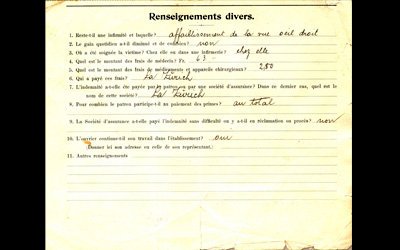 Renseignements divers.
1. Reste-t-il une infirmité et laquelle? affaiblissement de la vue oeil droit
2. Le gain quotidien a-t-il diminué et de combien? non
3. Où a été soignée la victime? Chez elle ou dans une infirmerie? chez elle
4. Quel est le montant des frais de médecin? Fr. 63.–
5. Quel est le montant des frais de médicaments et appareils chirurgicaux? 2,80
6. Qui a payé ces frais? La Zurich
7. L'indemnité a-t-elle été payée par le patron ou par une société d'assurance? Dans ce dernier cas, quel est le
nom de cette société? La Zurich
8. Pour combien le patron participe-t-il au paiement des primes? au total
9. La Société d'assurance a-t-elle payé l'indemnité sans difficulté ou y a-t-il eu réclamation ou procès? non
10. L'ouvrier continue-t-il son travail dans l'établissement? oui
(Donner ici son adresse ou celle de son représentant.)
11. Autres renseignements